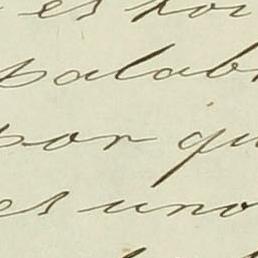 es
palab
por qu
es uno